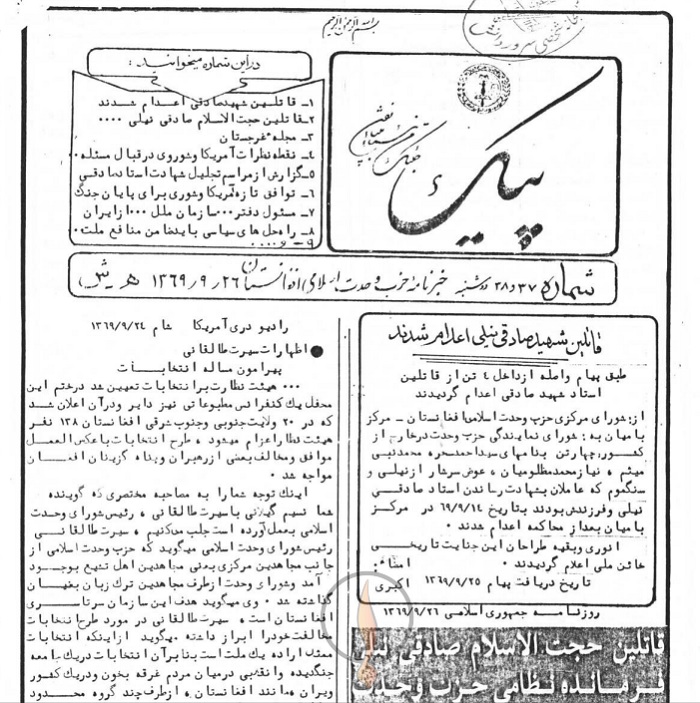 بسم الله الرحمن الرحیم
دراین شماره میخوانید :
۱ـ قاتلین شهیدصادقی اعدام شدند
۲ـ قاتلین حجت الاسلام صادقی نیلی ۰۰۰۰
۳ـ مجله غرجستان
۴ـ نقطه نظرات آمریکا وشوروی درقبال مسئله ۰۰
۵ـ گزارش ازمراسم تجلیل شهادت استادصادقی
۶ـ توافق تازه آمریکا وشوری برای پایان جنگ
۷ـ مسئول دفتر ۰۰۰ سازمان ملل ۰۰۰ ازایران
۸ـ راه حل های سیاسی بایدضامن منافع ملت ۰۰
۹ـ و ۰۰۰۰۰
پیک
شماره ۳۷ و ۳۸ دوشنبه خبرنامهٔ حزب وحدت اسلامی افغانستان ۲۶ ر ۹ ر ۱۳۶۹ هـ ش
قاتلین شهیدصادقی نیلی اعدام شدند
طبق پیام واصله ازداخل ۴ تن از قاتلین
استاد شهید صادقی اعدام گردیدند
از: شورای مرکزی حزب وحدت اسلامی افغانستان ـ مرکز
بامیان به : شورای نمایندگی حزب وحدت درخارج از
کشور، چهارتن بنامهای سیداحمد، حمزه محمدنبی
میثم ، نیازمحمدمظلومیان ، عوض سرشار ازنیلی و
سنگموم که عاملان بشهادت رساندن استاد صادقی
نیلی وفرزنش بودند بتاریخ ۶۹/۹/۱۴ در مرکز
بامیان بعداز محاکمه اعدام شدند ۰
انوری وبقیه طراحان این جنایت تاریخی
خائن ملی اعلام گردیدند ۰ امضاء :
تاریخ دریافت پیام ۱۳۶۹/۹/۲۵ اکبری
روزنامه جمهوری اسلامی ۱۳۶۹/۹/۲۶
قاتلین حجت الاسلام صادقی نیلی
فرمانده نظامی حزب وحدت
رادیو دری آمریکا شام ۱۳۶۹/۹/۲۴
● اظهارات سیرت طالقانی
پیرامون مساله انتخابات
۰۰۰ هیئت نظارت برانتخابات تعیین شد درختم این
محفل یک کنفرانس مطبوعاتی نیز دایر ودرآن اعلان شد
که در ۲۰ ولایت جنوبی وجنوب شرقی افغانستان ۱۳۸ نفر
هیئت نظار اعزام میشود ، طرح انتخابات باعکس العمل
موافق ومخالف بعضی ازرهبران وپناه گزینان افغان
مواجه شد ۰
اینک توجه شمارا به مصاحبه مختصری که گوینده
شما نسیم گیلانی باسیرت طالقانی ، رئیس شورای وحدت
اسلامی بعمل آورده است جلب می‌کنیم ، سیرت طالقانی
رئیس شورای وحدت اسلامی میگوید که حزب وحدت اسلامی از
جانب مجاهدین مرکزی یعنی مجاهدین اهل تشیع بوجود
آمد وشورای وحدت ازطرف مجاهدین ترک زبان بغیان
گذاشته شد ۰ وی میگوید هدف این سازمان سرتاسری
افغانستان است ، سیرت طالقانی در مورد طرح انتخابات
مخالفت خودرا ابراز داشته میگوید ازاینکه انتخابات
ممثل اراده یک ملت است بنابرآن انتخابات دریک جامعه
جنگیده وانقلابی درمیان مردم غرقه بخون ودریک کشور
ویران مانند افغانستان ، ازطرف چند گروه محدود